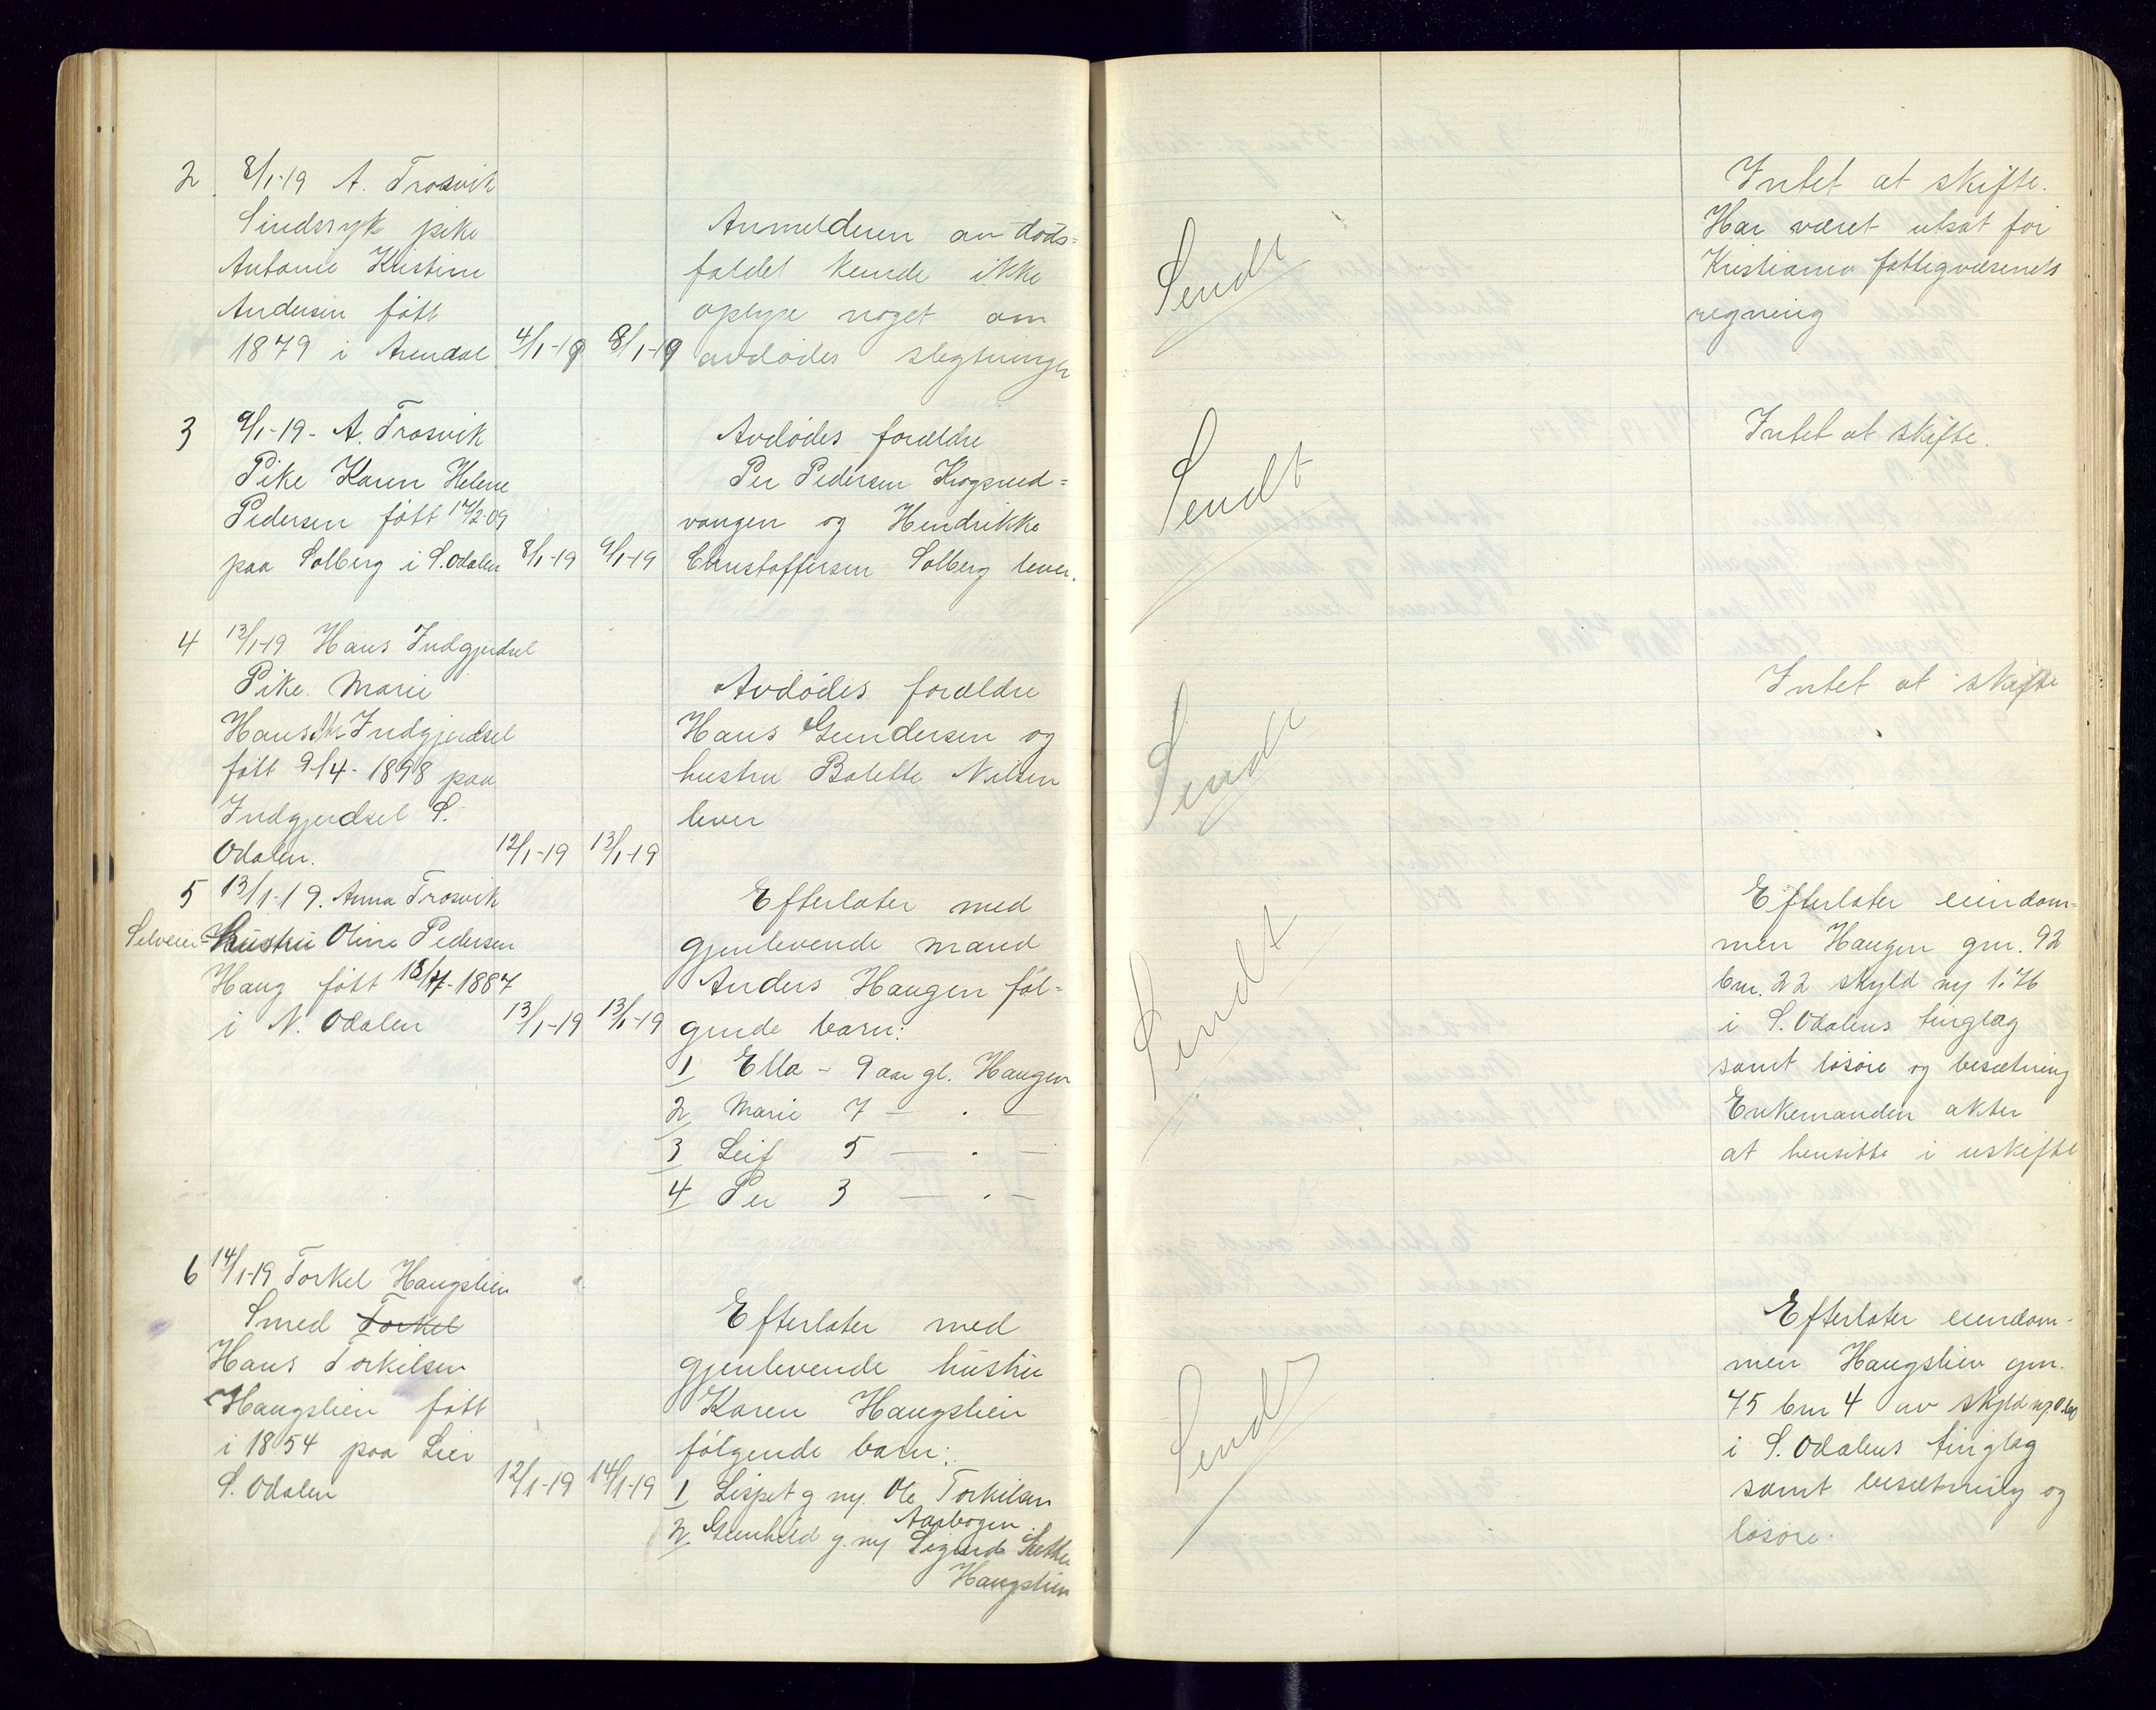 2 8/1-19 A. Trosvik
Sindssyk pike
Antonie Kristine
Andersen født
1879 i Arendal 4/1-19 8/1-19
Anmelderen av døds=
faldet kunde ikke
oplyse noget om
avdødes slegtninger
Sendt
Intet at skifte.
Har været utsat for
Kristiania fattigvæsenets
regning
3 9/1-19- A. Trosvik
Pike Karen Helene
Pedersen født 14/2-09
paa Solberg i S. Odalen 8/1-19 9/1-19
Avdødes forældre
Per Pedersen Krogsrud=
vangen og Hendrikke
Christoffersen Solberg lever.
Sendt
Intet at skifte.
4 13/1-19 Hans Indgjerdsel
Pike Marie
Hansdtr. Indgjerdsel
født 9/4-1898 paa
Indgjerdsel S.
Odalen. 12/1-19 13/1-19
Avdødes forældre
Hans Gundersen og
hustru Bolette Nilsen
lever
Sendt
Intet at skifte
5 13/1-19. Anna Trosvik
Selveier= Hustru Oline Pedersen
Haug født 18/4-1887
i N. Odalen 13/1-19 13/1-19
Efterlater med
gjenlevende mand
Anders Haugen føl=
gende barn:
1 Ella - 9 aar gl. Haugen
2 Marie 7 — . —
3 Leif 5 — . —
4 Per 3 — . —
Sendt
Efterlater eiendom=
men Haugen gnr. 92
bnr. 22 skyld ny 1.76
i S. Odalens tinglag
samt løsøre og besætning
Enkemanden akter
at hensitte i uskifte
6 14/1-19 Torkel Haugslien
Smed Torkel
Hans Torkilsen
Haugslien født
i 1854 paa Lier
S. Odalen 12/1-19 14/1-19
Efterlater med
gjenlevende hustru
Karen Haugslien
følgende barn:
1 Lispet g. m/ Ole Torkilsen
Aarbogen
2 Gunhild g. m/ Sigurd Sætther
Haugslien
Sendt
Efterlater eiendom-
men Haugslien gnr.
75 bnr 4 av skyld ny 0.60
i S. Odalens tinglag
samt besætning og
løsøre.